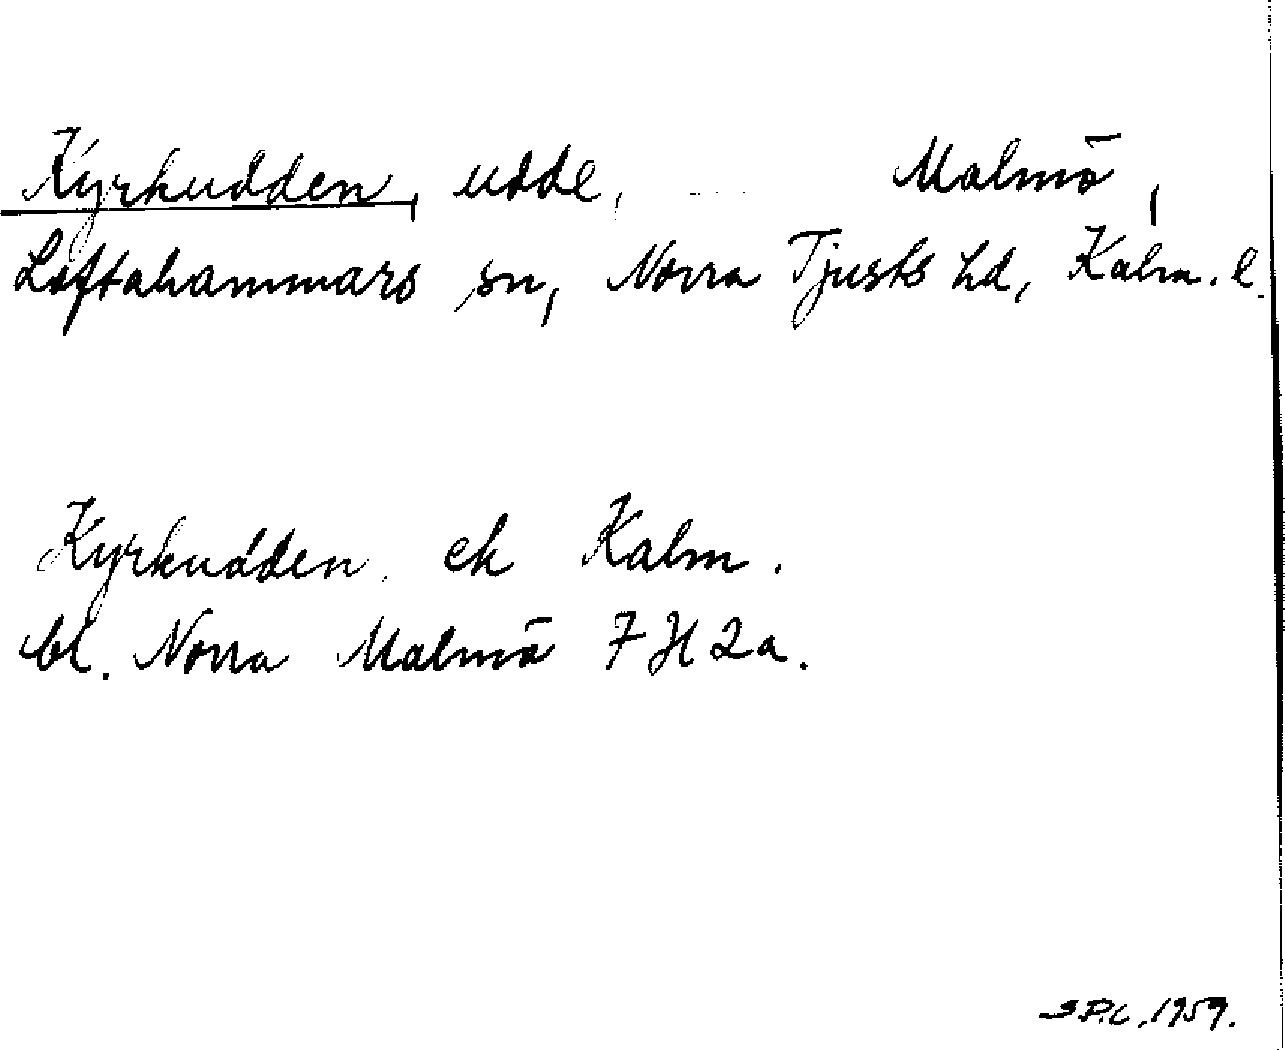 Kyrkudden, udde, Malmö,
Loftahammars sn, Norra Tjusts hd, Kalm. l.
Kyrkudden ek Kalm.
bl. Norra Malmö 7 H 2a.
S.P.L. 1959.